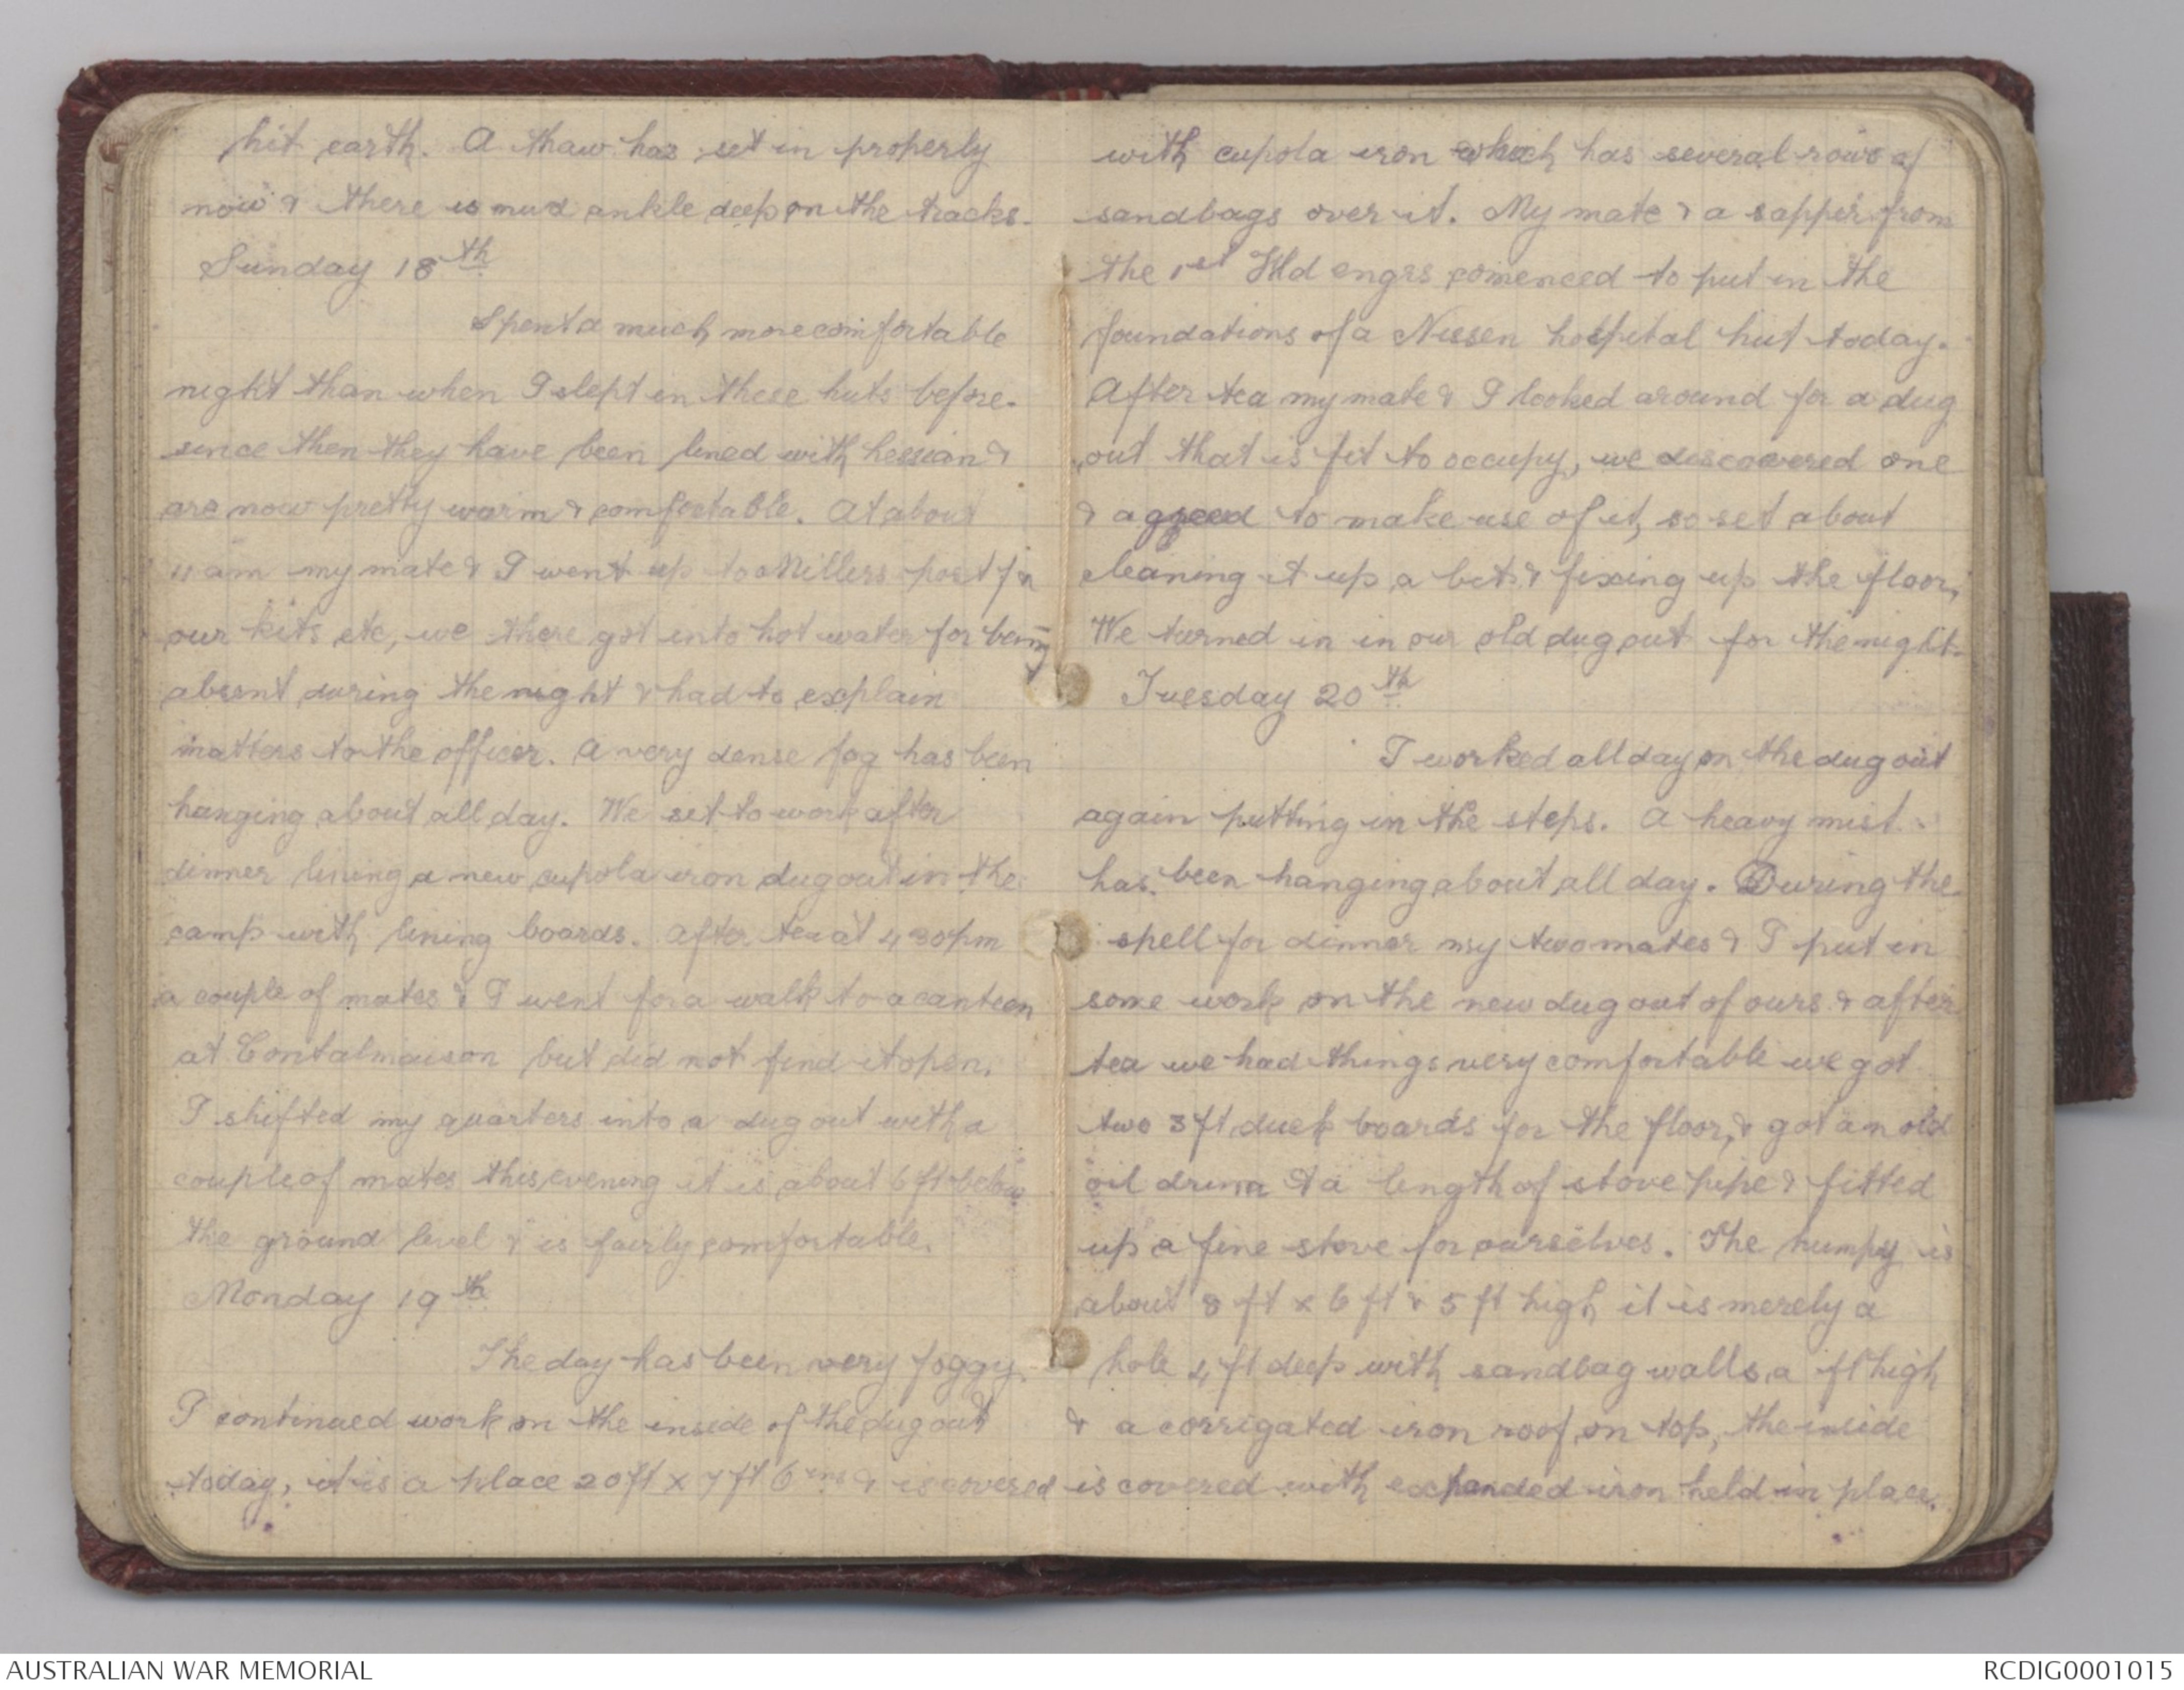 hit earth. A thaw has set in properly
now & there is mud ankle deep on the tracks.
Sunday 18th
Spent a much more comfortable
night than when I slept in these huts before.
since then they have been lined with hessian &
are now pretty warm & comfortable. At about
11 am my mate & I went up to Millers post for
our kits etc, we there got into hot water for being
absent during the night & had to explain
matters to the officer. A very dense fog has been
hanging about all day. We set to work after
dinner lining a new cupola iron dugout in the
camp with lining boards. After tea at 4 30 pm
a couple of mates & I went for a walk to a canteen
at Contalmaison but did not find it open.
I shifted my quarters into a dug out with a
couple of mates this evening it is about 6 ft below
the ground level & is fairly comfortable.
Monday 19th
The day has been very foggy.
I continued work on the inside of the dugout
today, it is a place 20 ft x 7 ft 6 ins & is covered
with cupola iron which has several rows of
sandbags over it. My mate & a sapper from
the 1st Fld engrs comenced to put in the
foundations of a Nissen hospital hut today.
After tea my mate & I looked around for a dug
out that is fit to occupy, we discovered one
& agreed to make use of it, so set about
cleaning it up a bit & fixing up the floor,
We turned in in our old dug out for the night.
Tuesday 20th
I worked all day on the dug out
again putting in the steps. A heavy mist
has been hanging about all day. During the
spell for dinner my two mates & I put in
some work on the new dug out of ours & after
tea we had things very comfortable we got
two 3 ft duck boards for the floor, & got an old
oil drum & a length of stove pipe & fitted
up a fine stove for ourselves. The humpy is
about 8 ft x 6 ft & 5 ft high it is merely a
hole 4 ft deep with sandbag walls a ft high
& a corrigated iron roof on top, the inside
is covered with expanded iron held in place.
AUSTRALIAN WAR MEMORIAL
RCDIG0001015